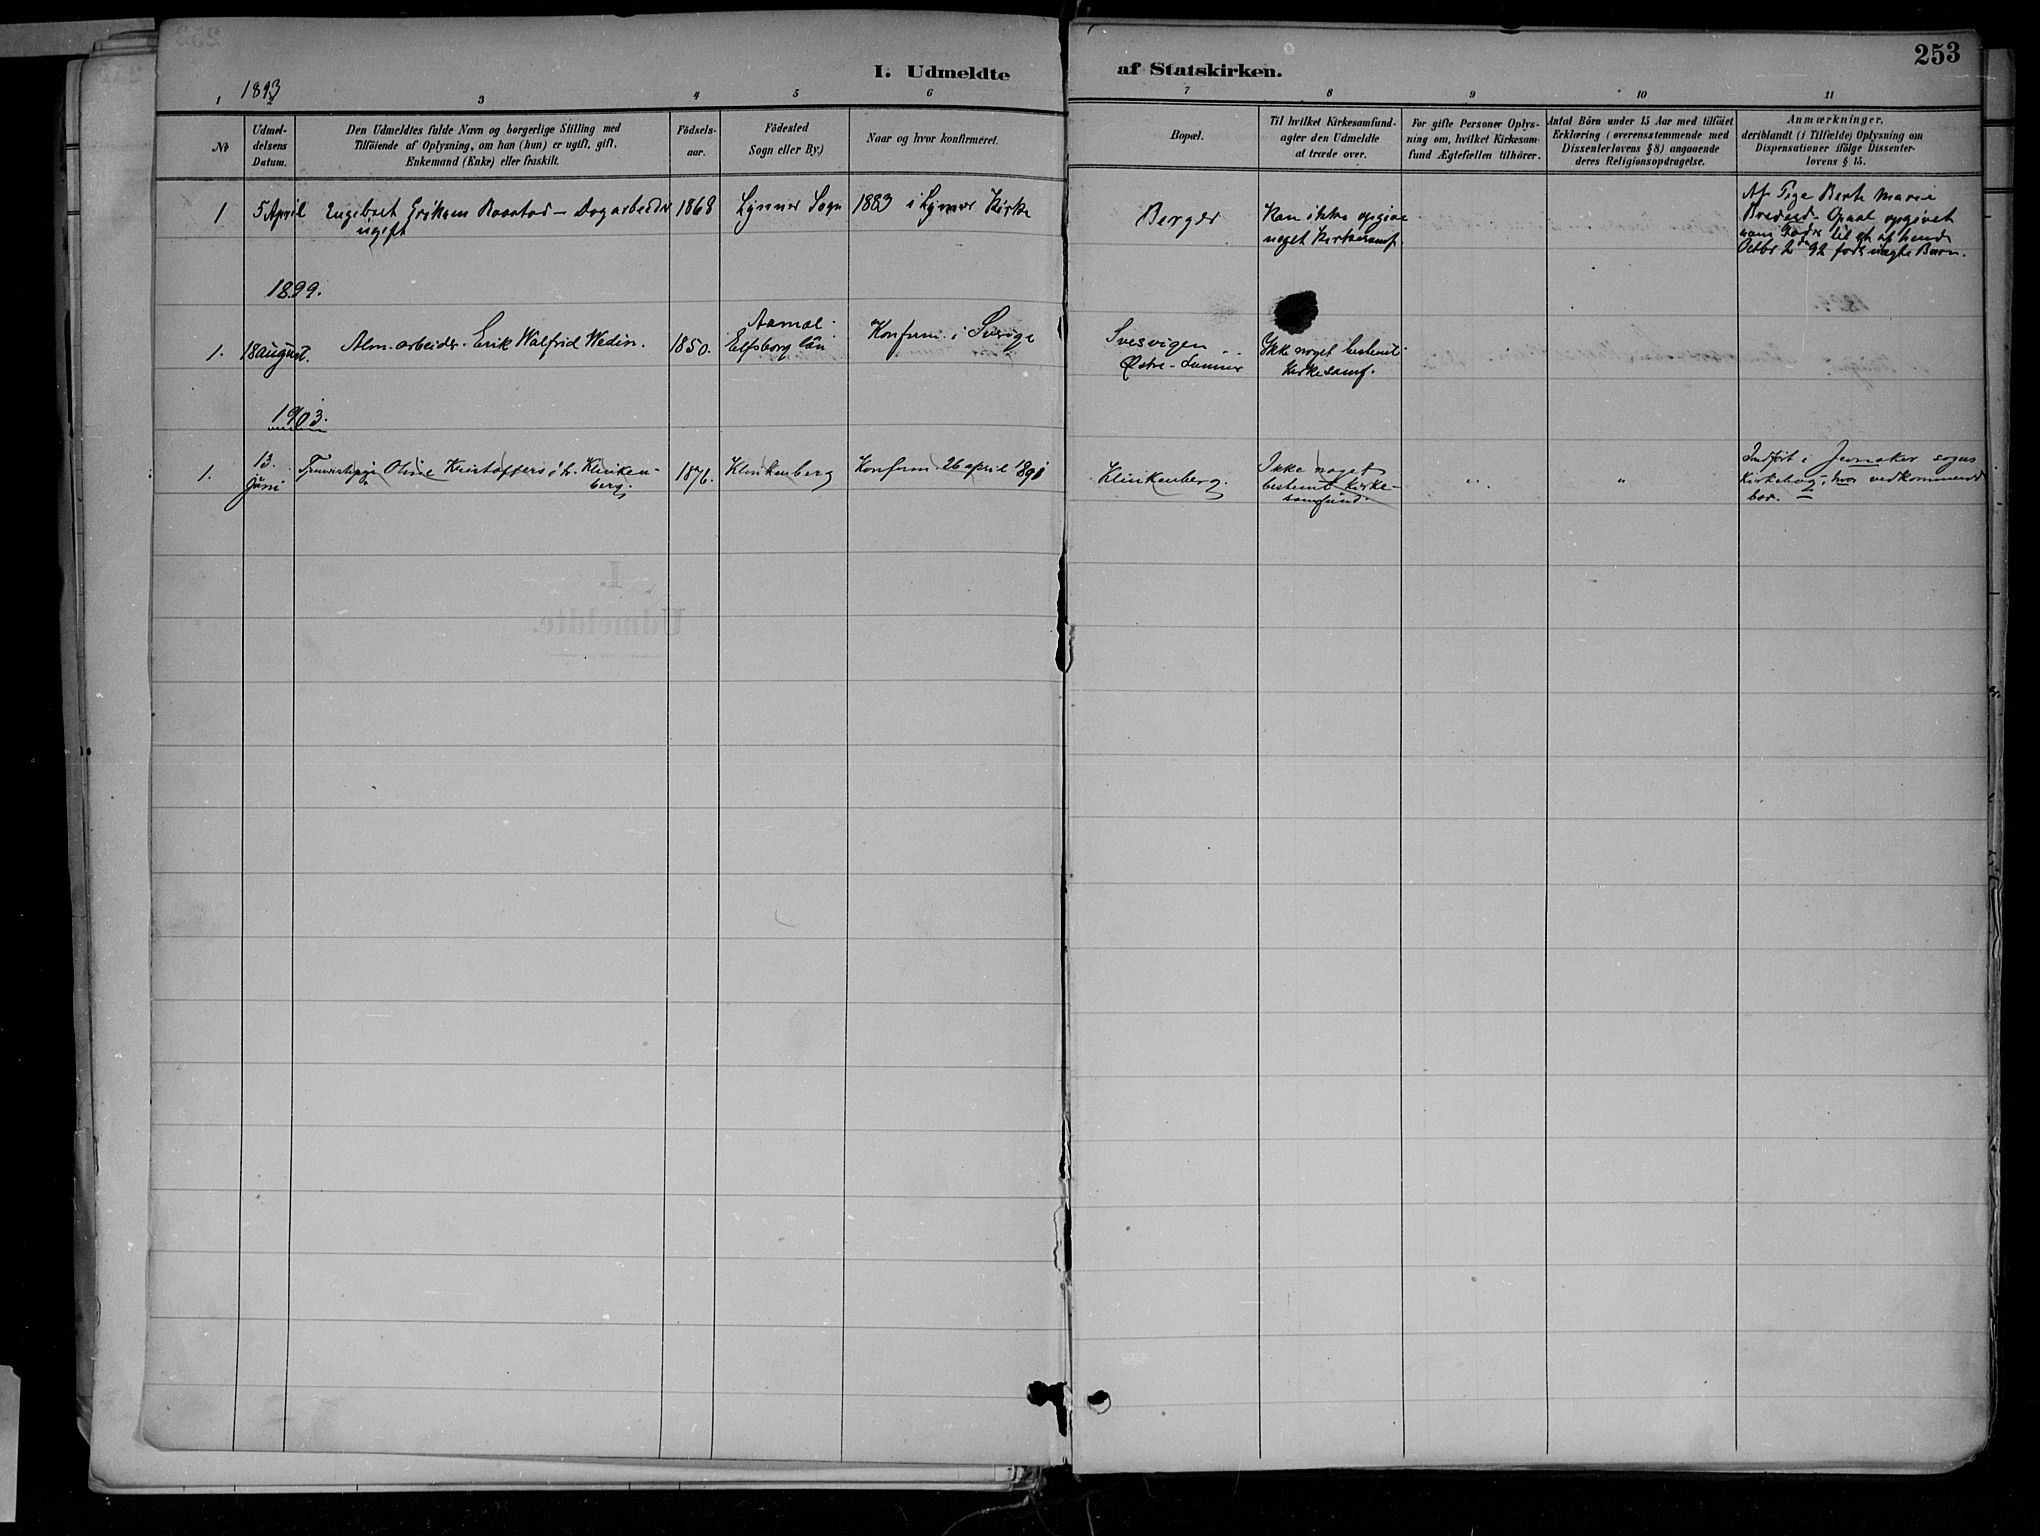 I. Udmeldte af Statskirken.
253
1893
1 2 3 4 5 6 7 8 9 10 11
No
Udmel-
delsens
Datum.
Den Udmeldtes fulde Navn og borgerlige Stilling med
Tilföiende af Oplysning, om han (hun) er ugift, gift,
Enkemand (Enke) eller fraskilt.
Födsels-
aar.
Födested
Sogn eller By.)
Naar og hvor konfirmeret.
Bopæl.
Til hvilket Kirkesamfund-
agter den Udmeldte
at træde over.
For gifte Personer Oplys-
ning om, hvilket Kirkesam-
fund Ægtefællen tilhörer.
Antal Börn under 15 Aar med tilföiet
Erklæring (overensstemmende med
Dissenterlovens § 8) angaaende
deres Religionsopdragelse.
Anmærkninger,
deriblandt (i Tilfælde) Oplysning om
Dispensationer ifölge Dissenter-
lovens § 15.
1
5 April
Engebret Eriksen Raastad - Dagarbeider
ugift
1868
Lynner Sogn
1883 i Lynner Kirke
Berger
Kan ikke opgive
noget Kirkesamf.
Af Pige Berte Marie
opgivet
som Fader til et af hende
Octbr 2 92 født uægte Barn.
1899.
1.
18 august.
Alm. arbeider Erik Walfrid Wedin.
1850.
Aamål
Elfsborg län
Konfirm. i Sverige
Svesvigen
Østre-Lunner
Ikke noget bestemt
Kirkesamf.
1903.
1.
13.
juni
Oline Kristoffersdtr. Klinken-
berg.
1876.
Klinkenberg
Konfirm. 26 april 1891
Klinkenberg.
Ikke noget
bestemt kirke-
samfund.
"
"
Indført i Jevnaker sogns
Kirkebog, hvor vedkommende
bor.